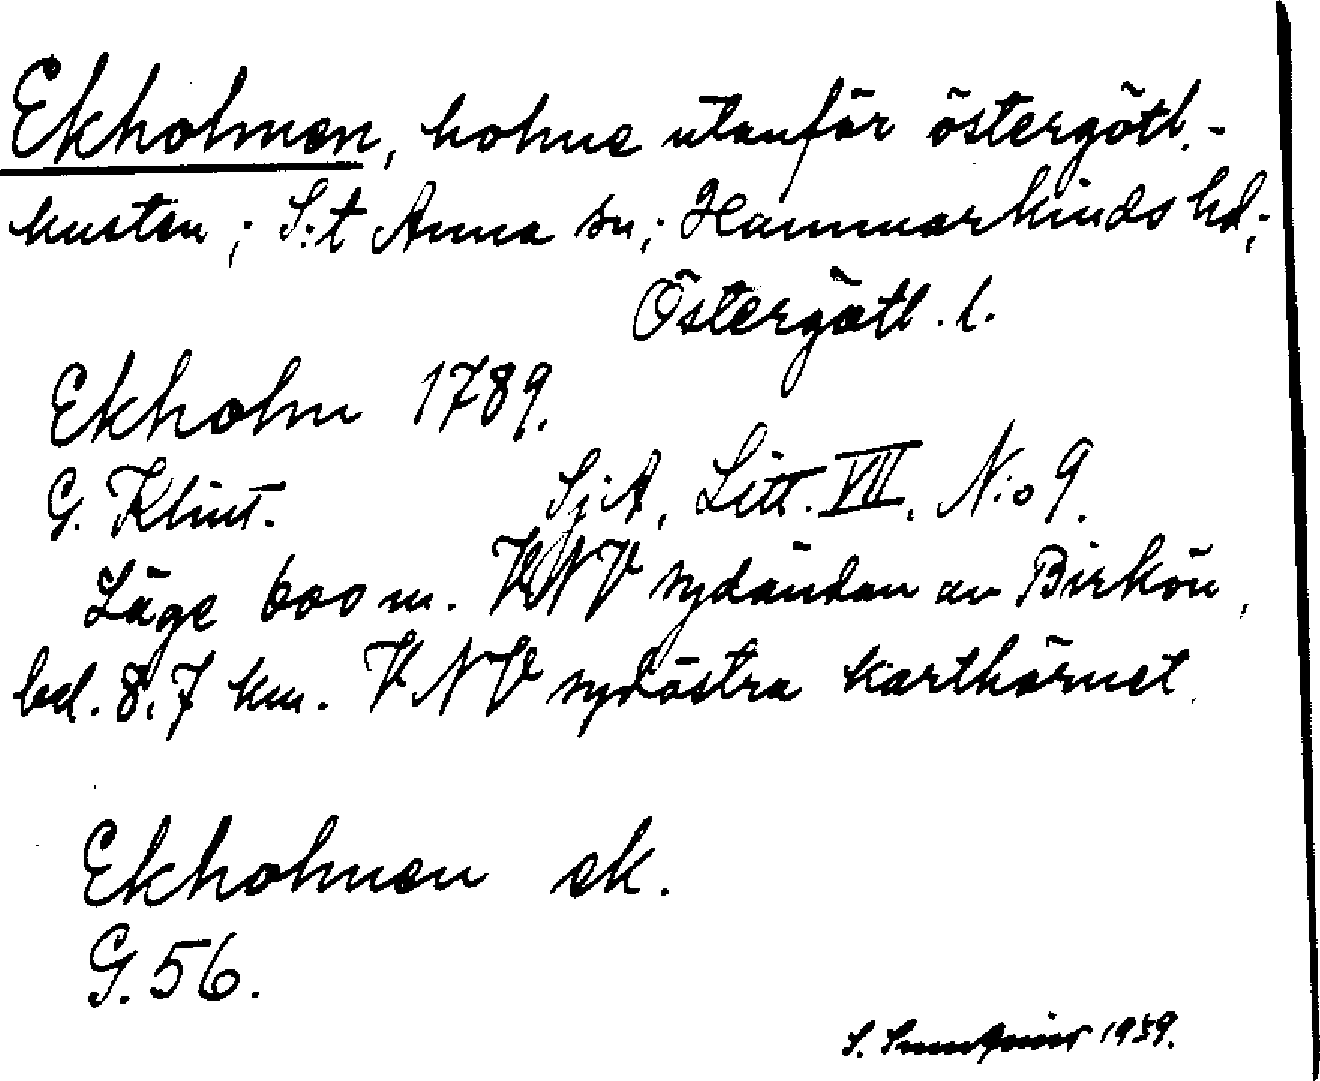 Ekholmen, holme utanför östergötl.-
kusten; S:t Anna sn; Hammarkinds hd;
Östergötl. l.
Ekholm 1789.
G. Klint. SjA, Litt. VII. N:o 9.
Läge 600 m. VNV sydändan av Birkön,
bel. 8,7 km. VNV sydöstra karthörnet.
Ekholmen ek.
G. 56.
S. 1939.